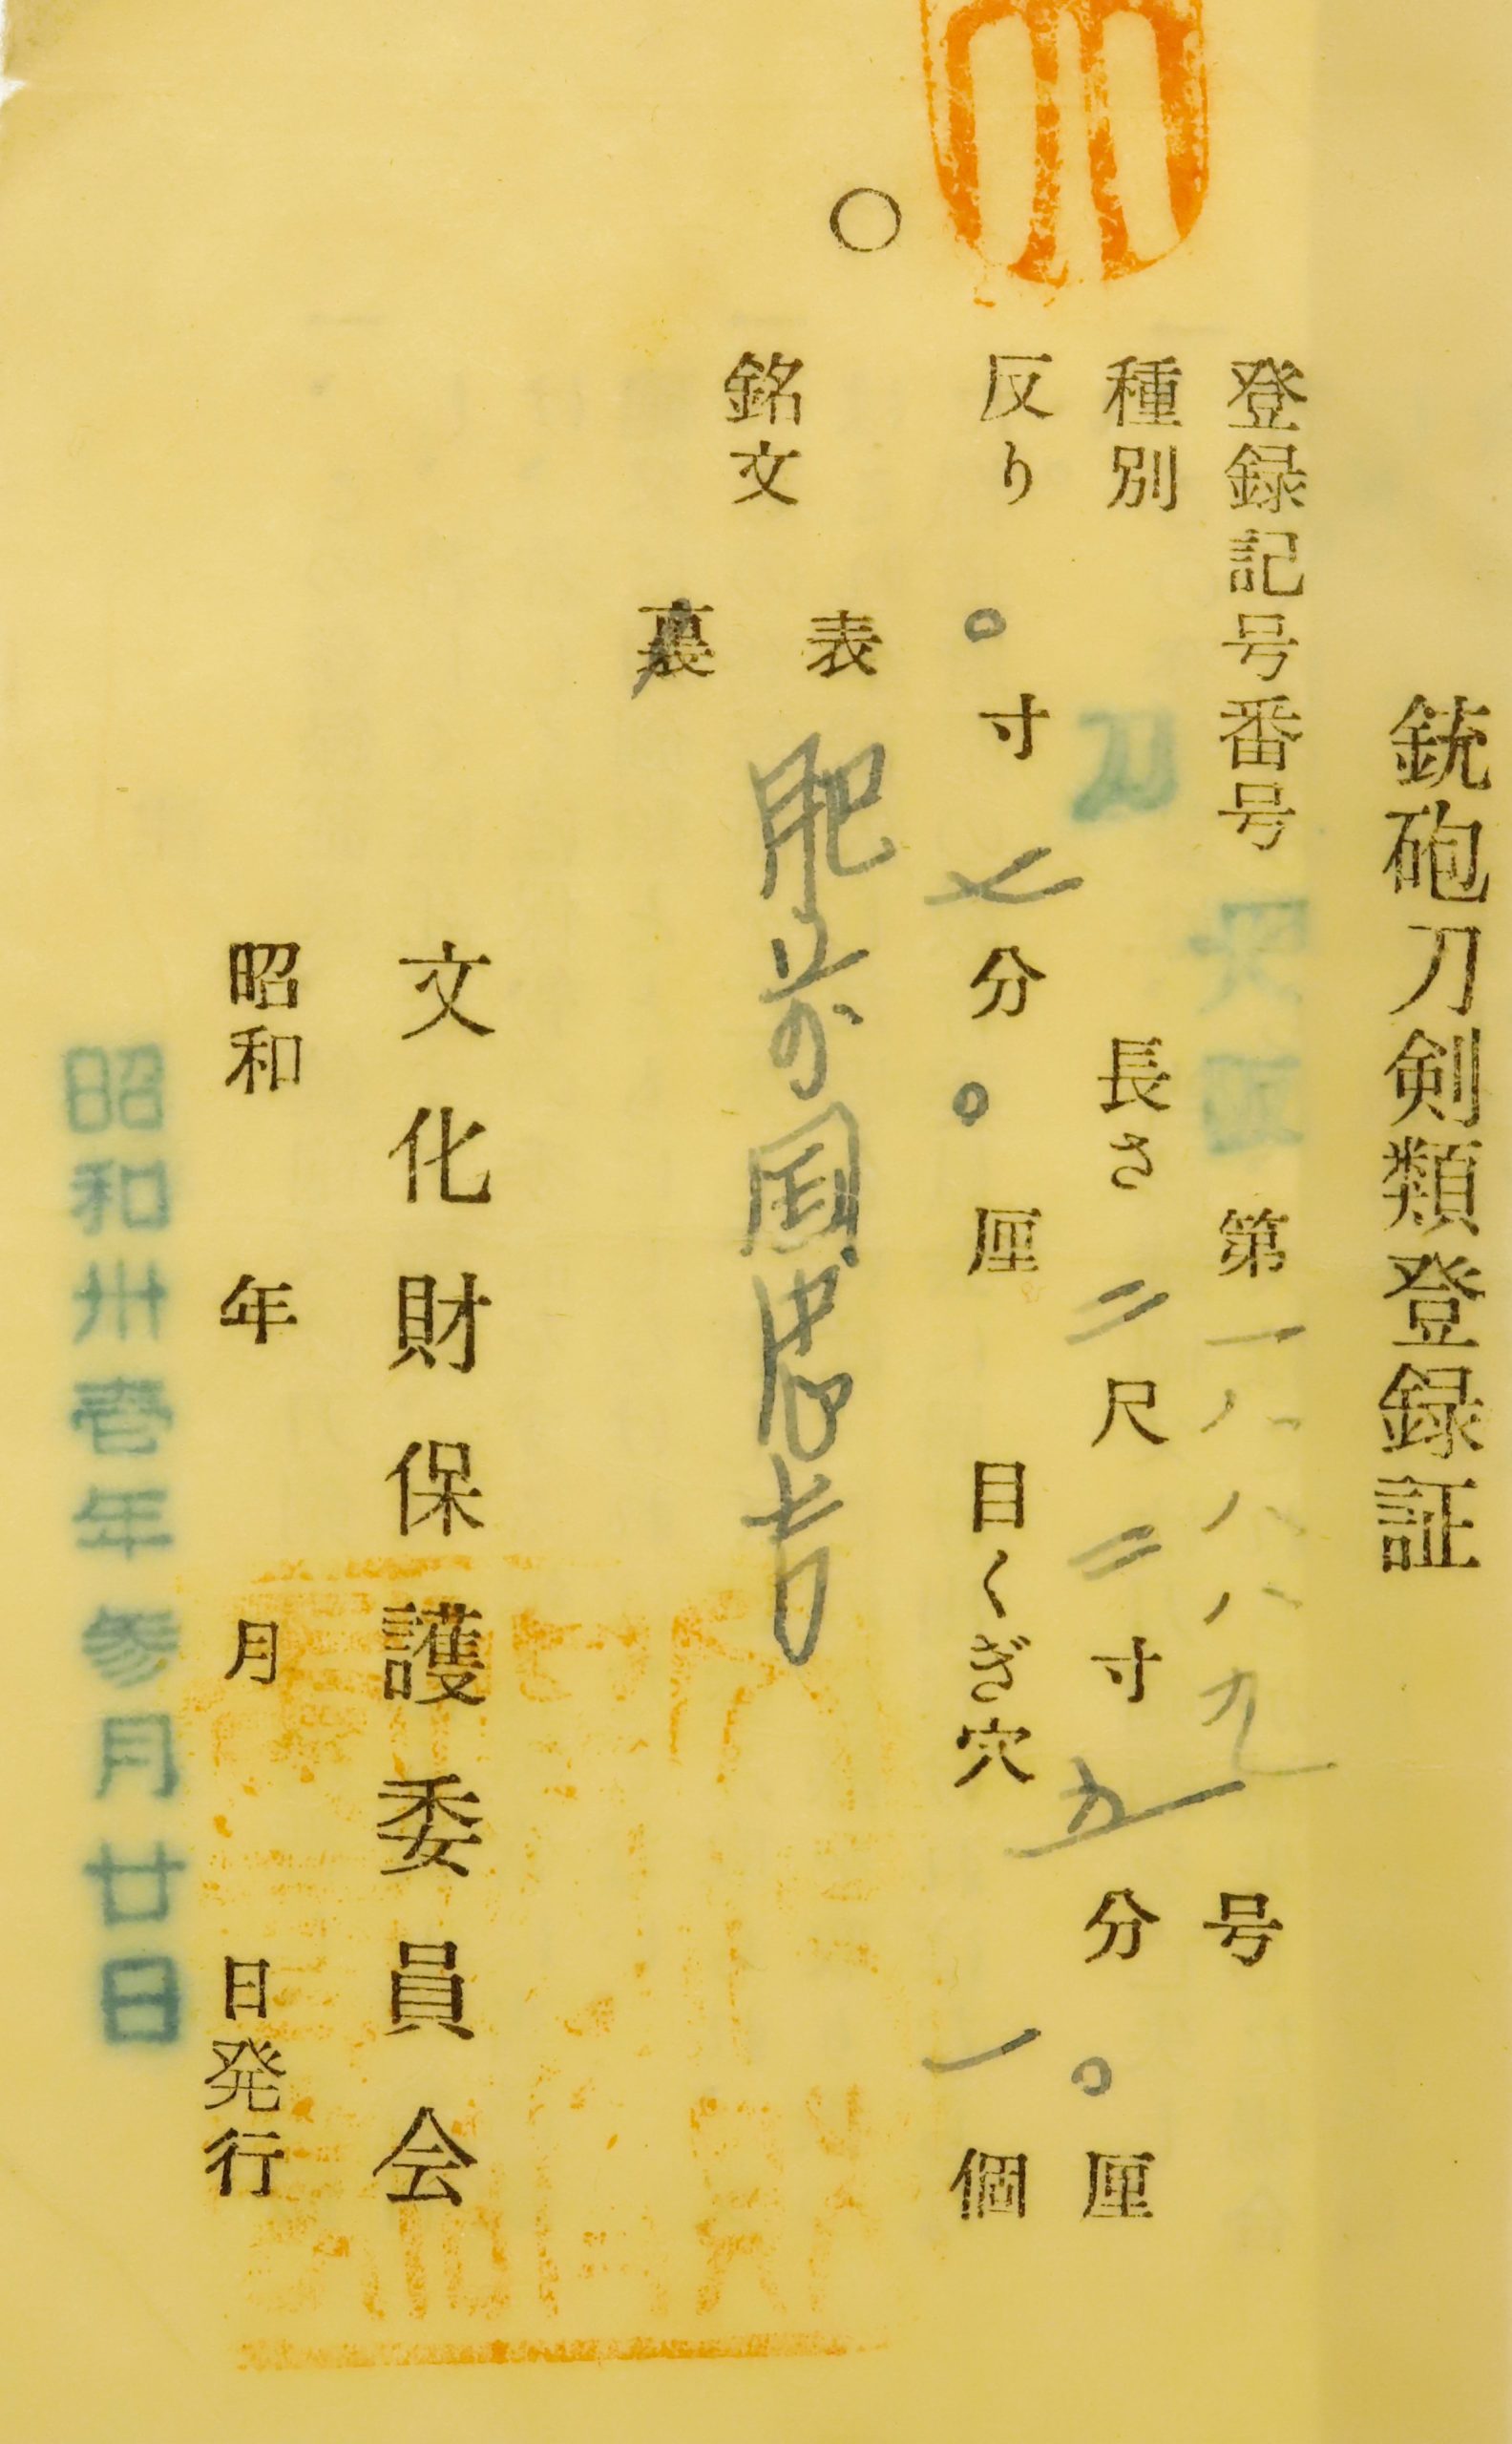 銃砲刀剣類登録証
登録記号番号 大阪 第一八八八九号
種別 刀 長さ 二尺二寸五分〇厘
反り 〇寸七分〇厘 目くぎ穴 一個
銘文 表 肥前国忠吉
裏
文化財保護委員会
昭和 年 月 日発行
昭和卅壱年参月廿日